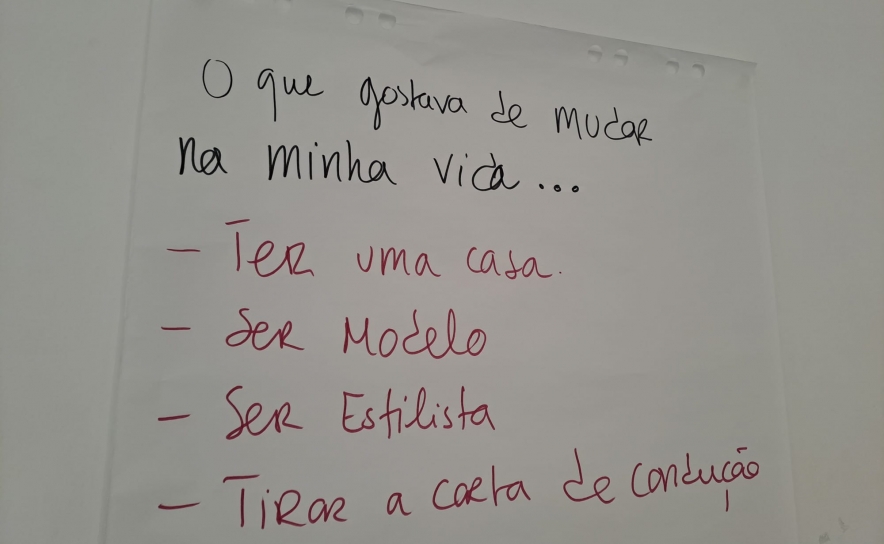 O que gostava de mudar
na minha vida...
- Ter uma casa.
- Ser Modelo
- Ser Estilista
- Tirar a carta de condução